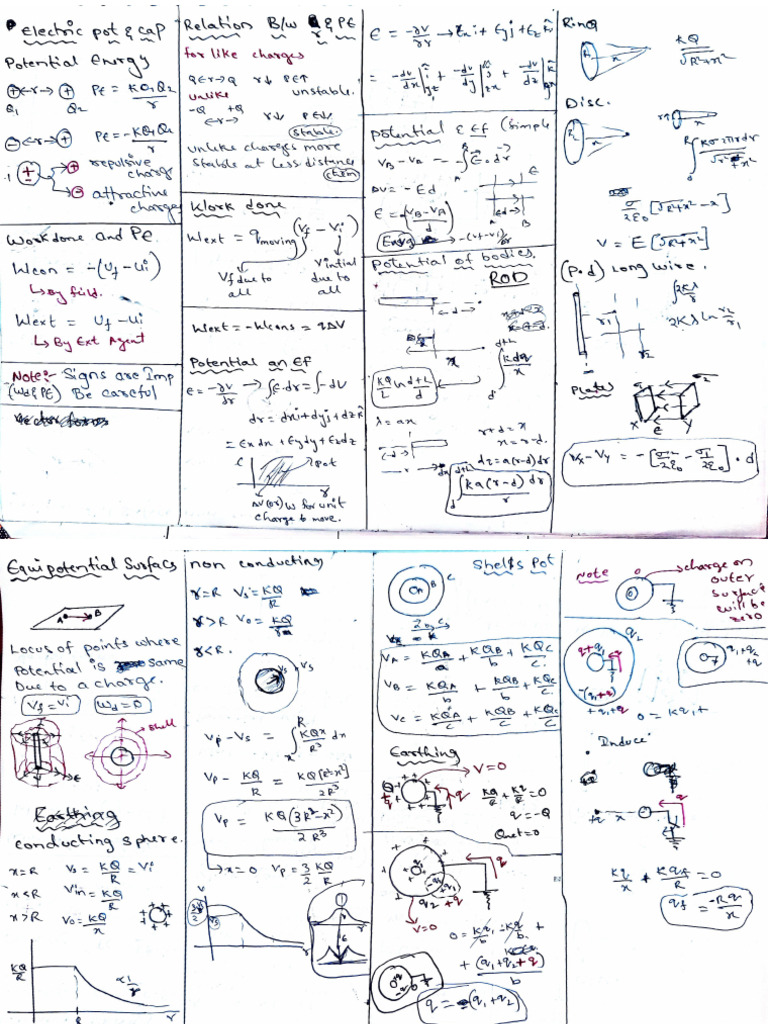 Electric pot & cap
Potential Energy
⊕←r→⊕ PE = KQ1Q2/r
Q1 Q2
⊖←r→⊕ PE = -KQ1Q2/r
repulsive charge
attractive charge
Workdone and PE.
Wcon = -(Uf - Ui)
↳ By field.
Wext = Uf - Ui
↳ By Ext Agent
Note:- Signs are Imp
(Wd & PE) Be careful
Relation B/w r & PE
for like charges
Q←r→Q r↓ PE↑
unlike unstable.
-Q +Q
←r→ r↓ PE↓
stable.
unlike charges more
stable at less distance
Work done
Wext = qmoving (Vf - Vi)
Vf due to all
Vintial due to all
Wext = -Wcons = qΔV
Potential an Ef
E = -∂V/∂r → ∫E.dr = ∫-dV
dr = dxi + dyj + dzk̂
= Exdx + Eydy + Ezdz
E
Pot
r
ΔV (or) W for unit
charge to move.
E = -∂V/∂r → Exi + Eyj + Ezk̂
= -dV/dx î + -dV/dy ĵ + -dV/dz k̂
Potential & Ef (simple
VB - VA = -∫E.dr
ΔV = -Ed
E = -(VB - VA)/d
Potential of bodies.
ROD
∫ Kdq/x
KQ/L ln d+L/d
λ = ax
r + d = x
x = r - d.
∫ Ka(r-d) dr/r
Ring
KQ/√R²+x²
Disc.
∫ Kσ2πrdr/√r²+x²
σ/2ε0 [√R²+x² - x]
V = E[√R²+x²]
(P.d) Long wire.
∫2Kλ/r
2Kλ ln r2/r1
r1
r2
Plates
X E Y
Vx - Vy = -[σ2/2ε0 - σ1/2ε0] . d
Equipotential Surface
A B
Locus of points where
Potential is same
Due to a charge.
Vf = Vi Wd = 0
shell
Earthing
conducting sphere.
x=R Vs = KQ/R = Vi
x<R Vin = KQ/R
x>R V0 = KQ/x
KQ/R
∝1/r
R r
non conducting
r=R Vs = KQ/R
r>R V0 = KQ/r
r<R.
Vp - Vs = ∫ KQx/R³ dx
Vp - KQ/R = KQ[R²-x²]/2R³
Vp = KQ(3R²-x²)/2R³
↳ x=0 Vp = 3/2 KQ/R
Shells Pot
B C
VA = KQA/a + KQB/b + KQC/c
VB = KQA/b + KQB/b + KQC/c
VC = KQA/c + KQB/c + KQC/c
Earthing
V=0
KQ/R + Kq/R = 0
q = -Q
Qnet = 0
V=0
q2 + q
+ (q1+q2+q)/b
q = -(q1+q2)
Note
charge on
outer
surface
will be
zero
q2
-(q1+q)
+q1+q
q1+q2
+q
0 = Kq1+
Induce
+q x
Kq/x + Kqf/R = 0
qf = -Rq/x